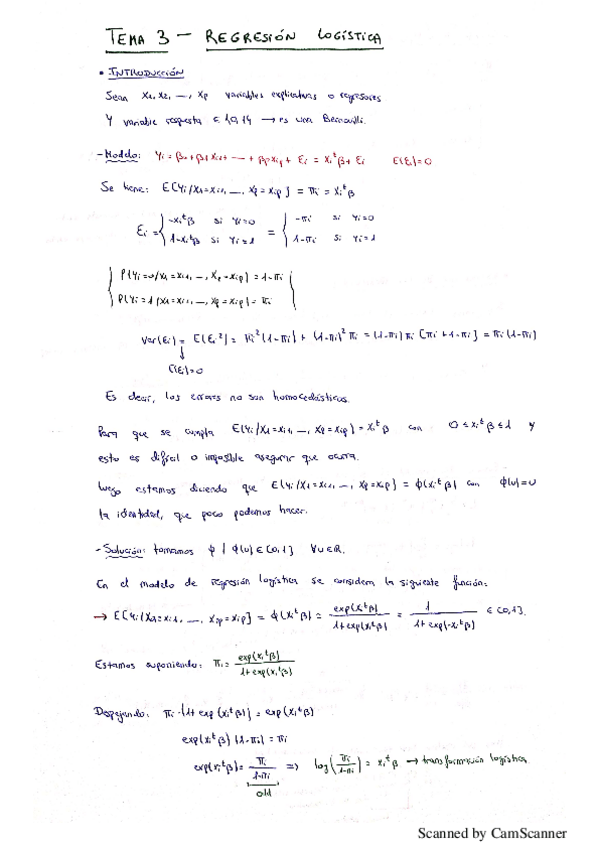 TEMA 3 — REGRESIÓN LOGÍSTICA
• INTRODUCCIÓN
Sean x1, x2, —, xp variables explicativas o regresores
Y variable respuesta ∈ {0,1} → es una Bernouilli.
- Modelo: Yi = β0 + β1 xi1 + --- + βp xip + εi = xiᵗβ + εi   E(εi)=0
Se tiene: E[Yi/X1=xi1, —, Xp=xip] = πi = xiᵗβ
εi = { -xiᵗβ si Yi=0 = { -πi si Yi=0
1-xiᵗβ si Yi=1   1-πi si Yi=1
P(Yi=0/X1=xi1, —, Xp=xip) = 1-πi
P(Yi=1/X1=xi1, —, Xp=xip) = πi
Var(εi) = E(εi²) = πi²(1-πi) + (1-πi)²πi = (1-πi)πi [πi+1-πi] = πi(1-πi)
↓
E(εi)=0
Es decir, los errores no son homocedásticos.
Para que se cumpla E(Yi/X1=xi1, —, Xp=xip) = xiᵗβ con 0 ≤ xiᵗβ ≤ 1 y
esto es difícil o imposible asegurar que ocurra.
Luego estamos diciendo que E(Yi/X1=xi1, —, Xp=xip) = ϕ(xiᵗβ) con ϕ(u)=u
la identidad, que poco podemos hacer.
- Solución: tomamos ϕ / ϕ(u) ∈ [0,1] ∀u∈ℝ.
En el modelo de regresión logística se considera la siguiente función:
→ E[Yi/X1=xi1, —, Xp=xip] = ϕ(xiᵗβ) = exp(xiᵗβ) / 1+exp(xiᵗβ) = 1 / 1+exp(-xiᵗβ) ∈ [0,1].
Estamos suponiendo: πi = exp(xiᵗβ) / 1+exp(xiᵗβ)
Despejando: πi·(1+exp(xiᵗβ)) = exp(xiᵗβ)
exp(xiᵗβ)(1-πi) = πi
exp(xiᵗβ) = πi / 1-πi ⇒ log(πi / 1-πi) = xiᵗβ → transformación logística.
odd
Scanned by CamScanner